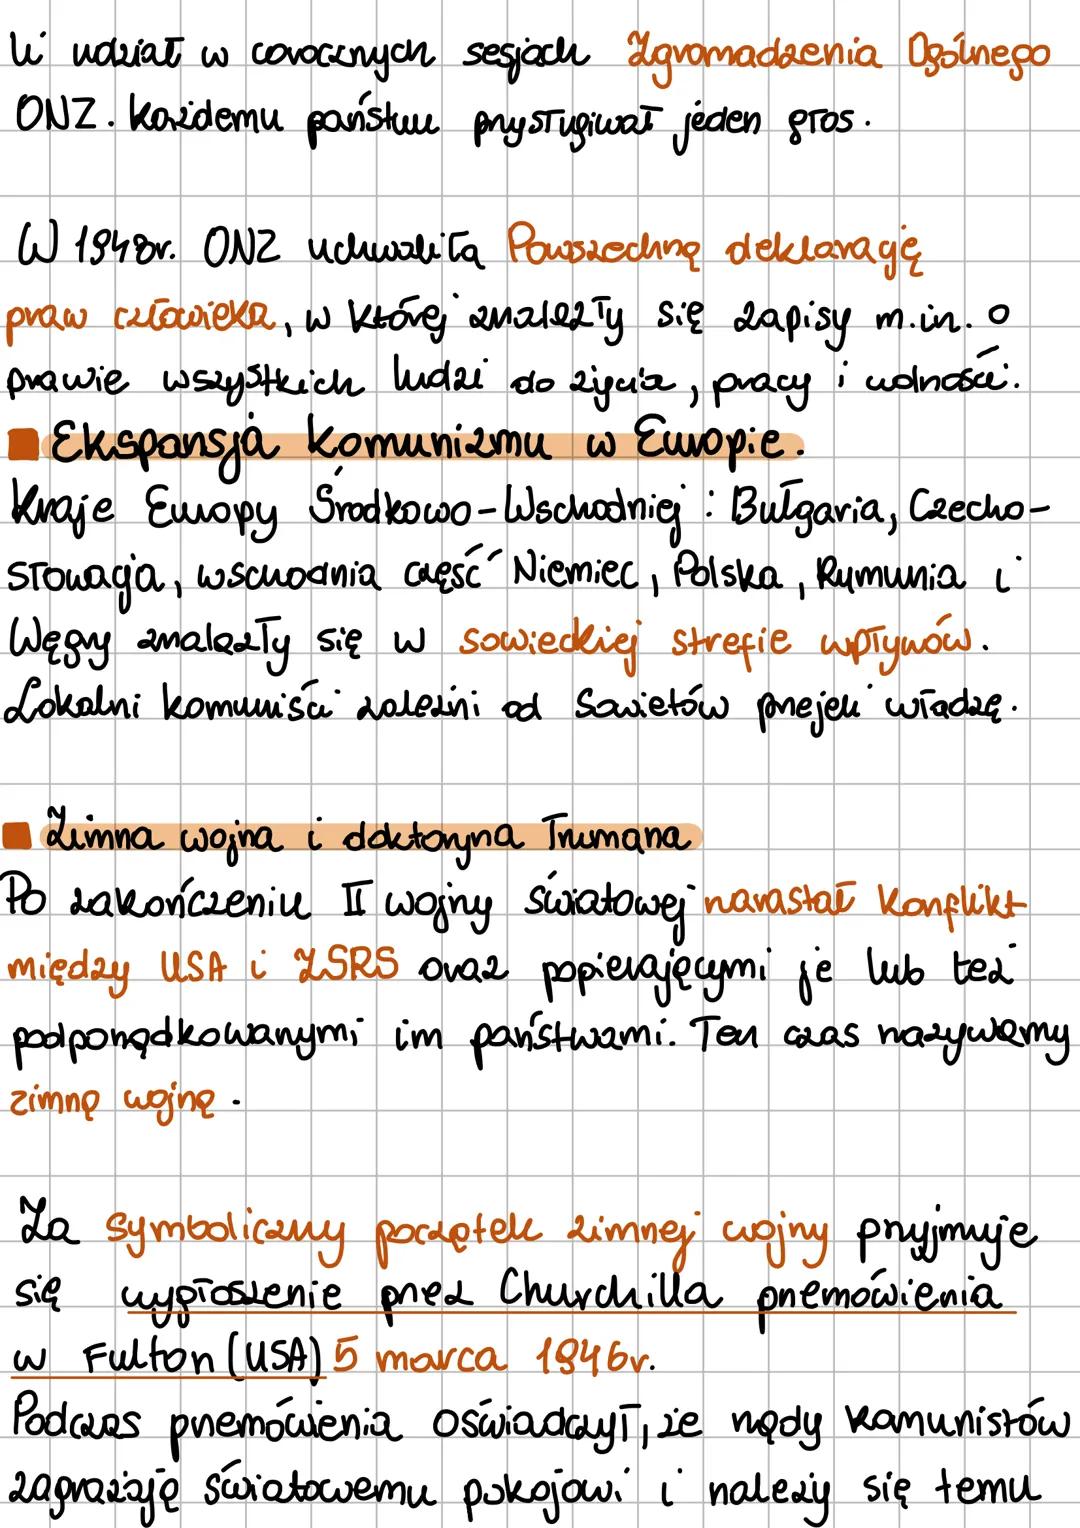 li udział w corocznych sesjach Zgromadzenia Ogólnego
ONZ. Każdemu państwu przysługiwał jeden głos.
W 1948r. ONZ uchwaliła Powszechną deklarację
praw człowieka, w której znalazły się zapisy m.in. o
prawie wszystkich ludzi do życia, pracy i wolności.
Ekspansja komunizmu w Europie.
Kraje Europy Środkowo-Wschodniej: Bułgaria, Czecho-
słowacja, wschodnia część Niemiec, Polska, Rumunia i
Węgry znalazły się w sowieckiej strefie wpływów.
Lokalni komuniści zależni od Sowietów przejęli władzę.
Zimna wojna i doktoryna Trumana
Po zakończeniu II wojny światowej narastał konflikt
między USA i ZSRS oraz popierającymi je lub też
podporządkowanymi im państwami. Ten czas nazywamy
zimną wojną.
Za symboliczny początek zimnej wojny przyjmuje
się wygłoszenie przez Churchilla przemówienia
w Fulton (USA) 5 marca 1946r.
Podczas przemówienia oświadczył, że rządy komunistów
zagrażają światowemu pokojowi i należy się temu